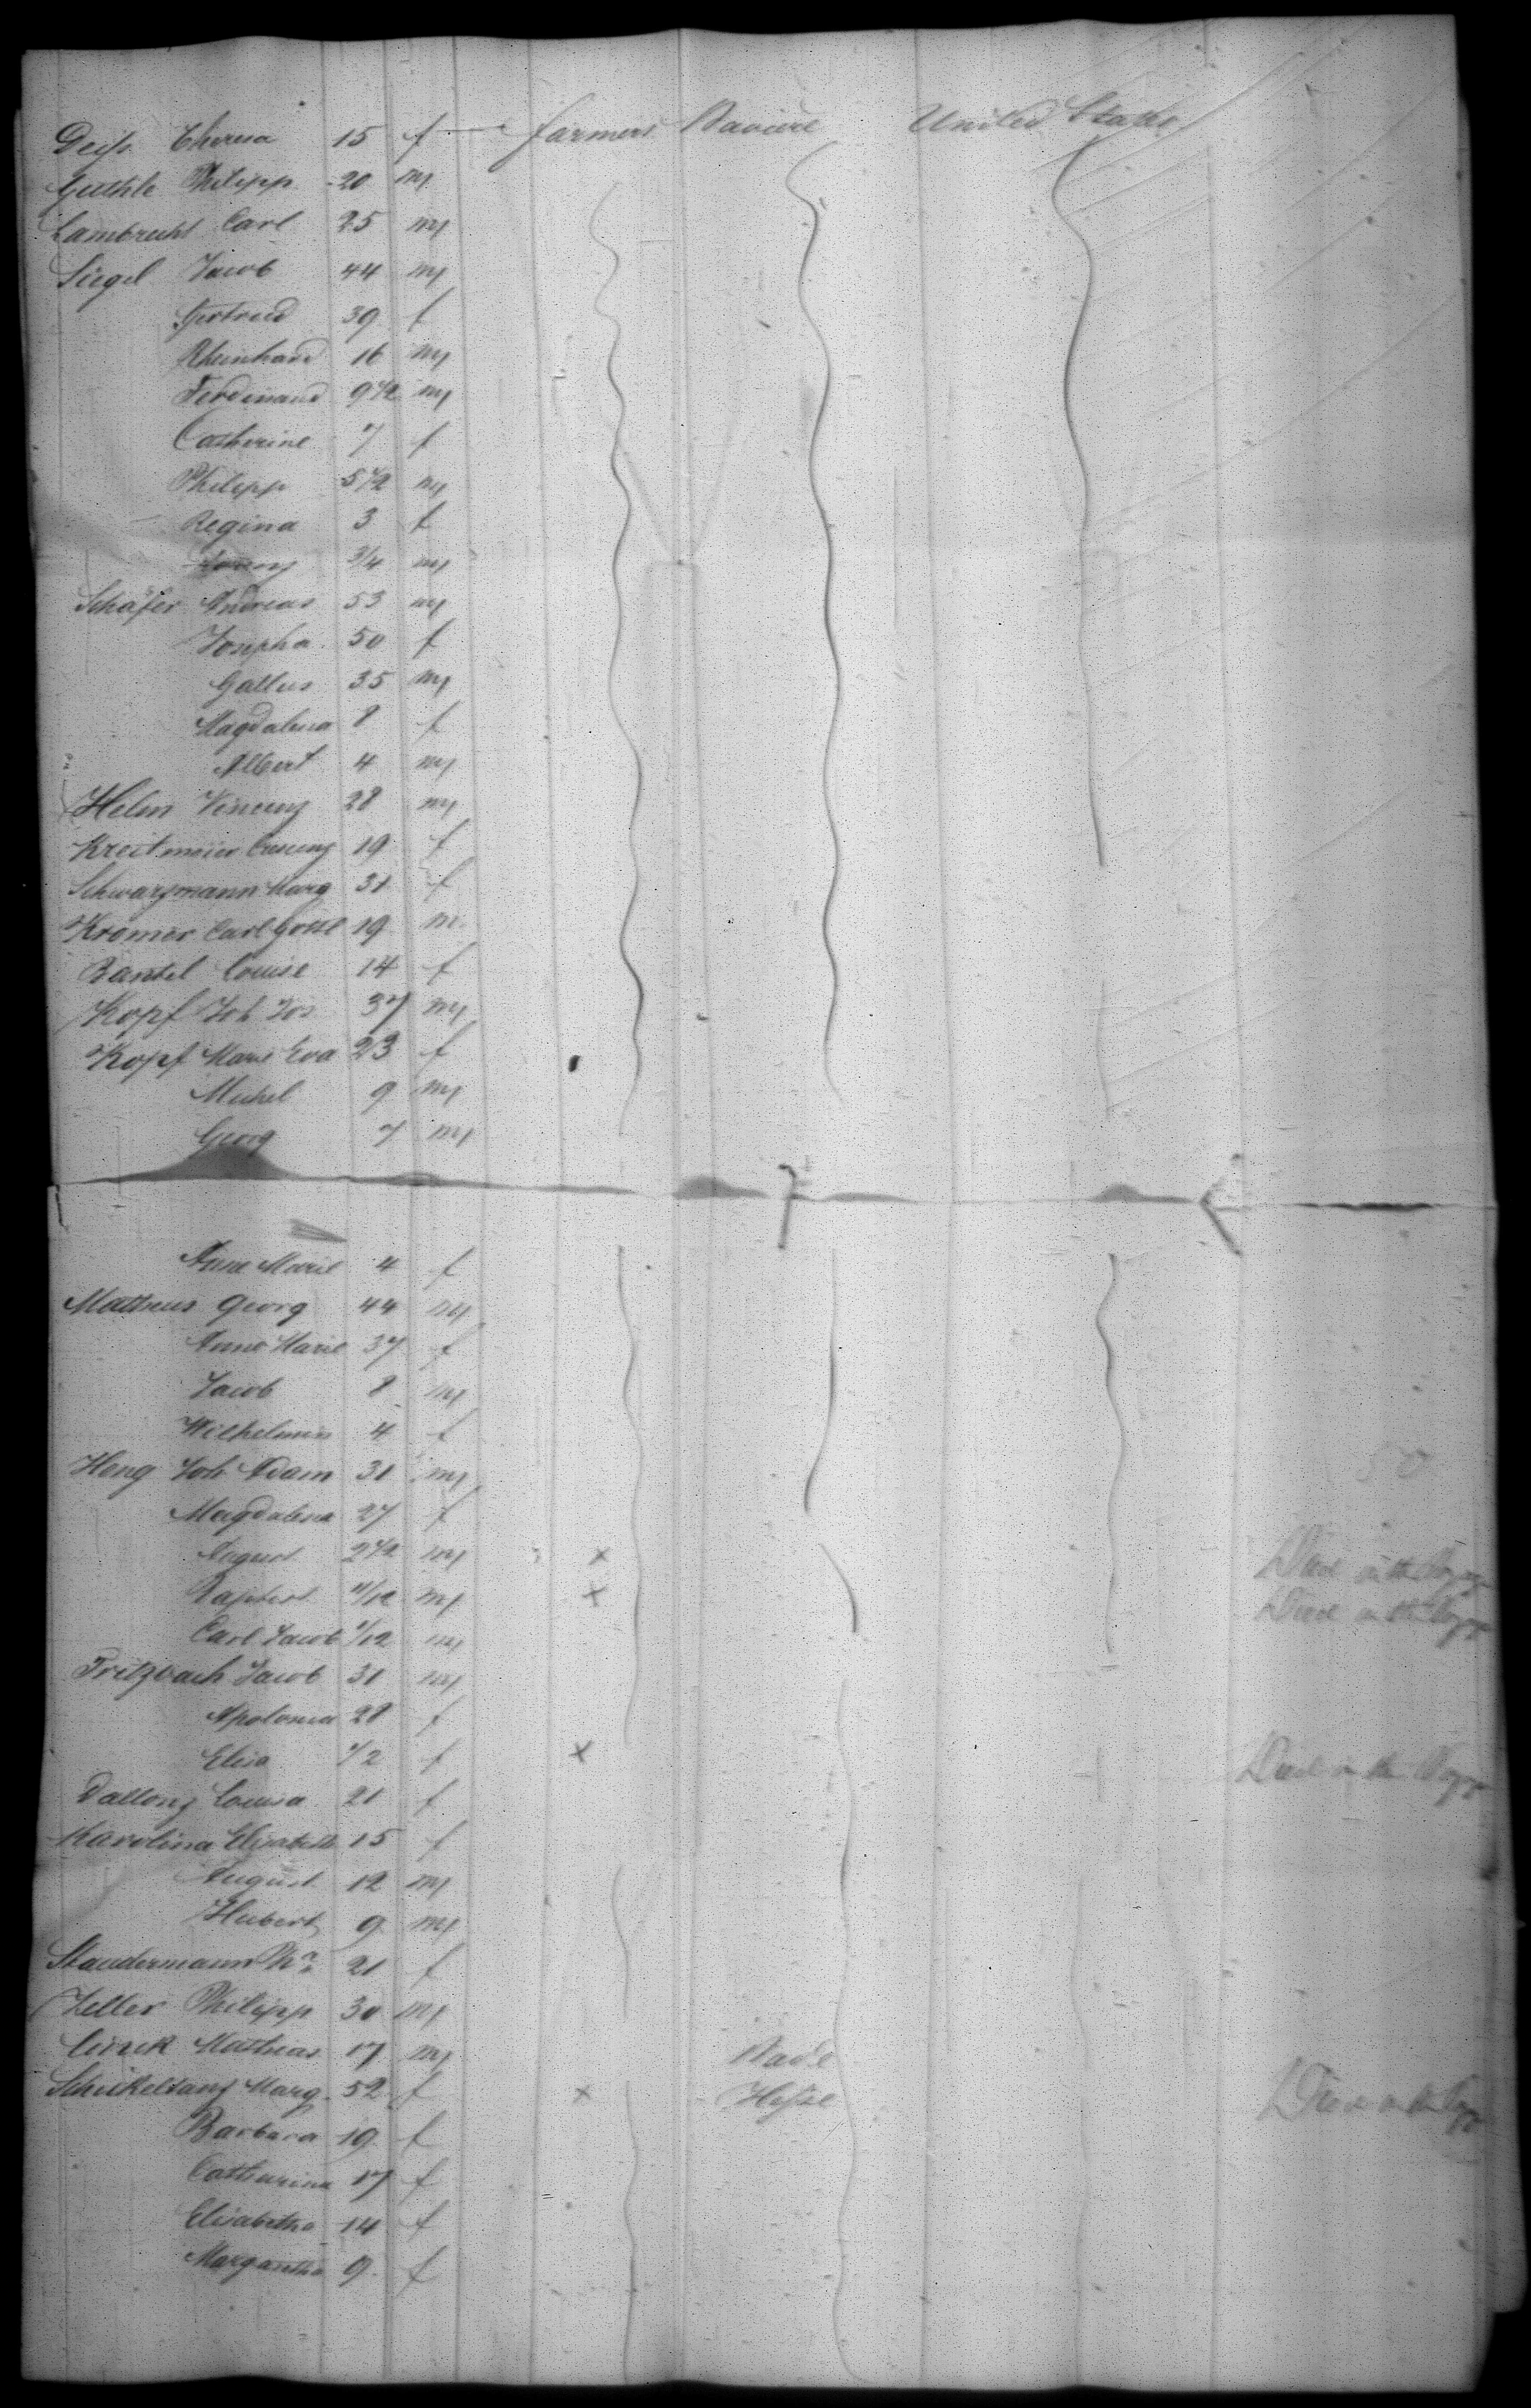 Deiß Theresa 15 f farmers Baviere United States
Guthle Philipp 20 m
Lambrecht Carl 25 m
Siegel Jacob 44 m
Gertrud 39 f
Rheinhard 16 m
Ferdinand 9 1/2 m
Catherine 7 f
Philipp 5 1/2 m
Regina 3 f
3/4 m
Schäfer Andreas 53 m
Josepha 50 f
Gallus 35 m
Magdalena 8 f
Albert 4 m
Helm Vincenz 28 m
Kreitmeier Crescenz 19 f
Schwarzmann Marg 31 f
Kromer Carl Gottl 19 m
Bantel Louise 14 f
Kopf Joh Jos 37 m
Kopf Marie Eva 23 f
Michel 9 m
Georg 7 m
Anne Marie 4 f
Matheus Georg 44 m
Anna Marie 37 f
Jacob 8 m
Wilhelmin 4 f
Heng Joh Adam 31 m
Magdalena 27 f
August 2 1/2 m x Died on the Voyage
Baptist 11/12 m x Died on the Voyage
Carl Jacob 1/12 m
Fritzbach Jacob 31 m
Apolonia 28 f
Elisa 1/2 f x Died on the Voyage
Dallony Louisa 21 f
Karolina Elisabeth 15 f
August 12 m
Hubert 9 m
Staudermann 21 f
Zeller Philipp 30 m
Mathias 17 m Bade
Marg 52 f x Hesse Died on the Voyage
Barbara 19 f
Catharina 17 f
Elisabetha 14 f
Margaretha 9 f